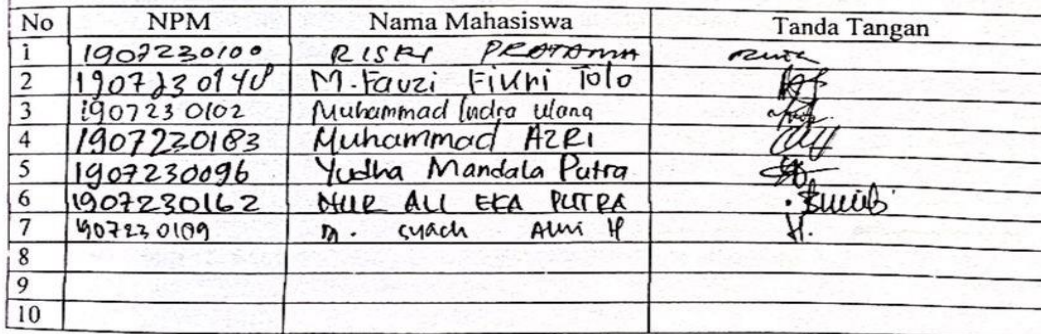 No NPM Nama Mahasiswa Tanda Tangan
1 1907230100 RISKI PRATAMA
2 1907230148 M. Fauzi Fikri Tolo
3 1907230102 Muhammad Indra ulana
4 1907230183 Muhammad AZRI
5 1907230096 Yudha Mandala Putra
6 1907230162 NUR ALI EKA PUTRA
7 1907230109 M. syach H
8
9
10